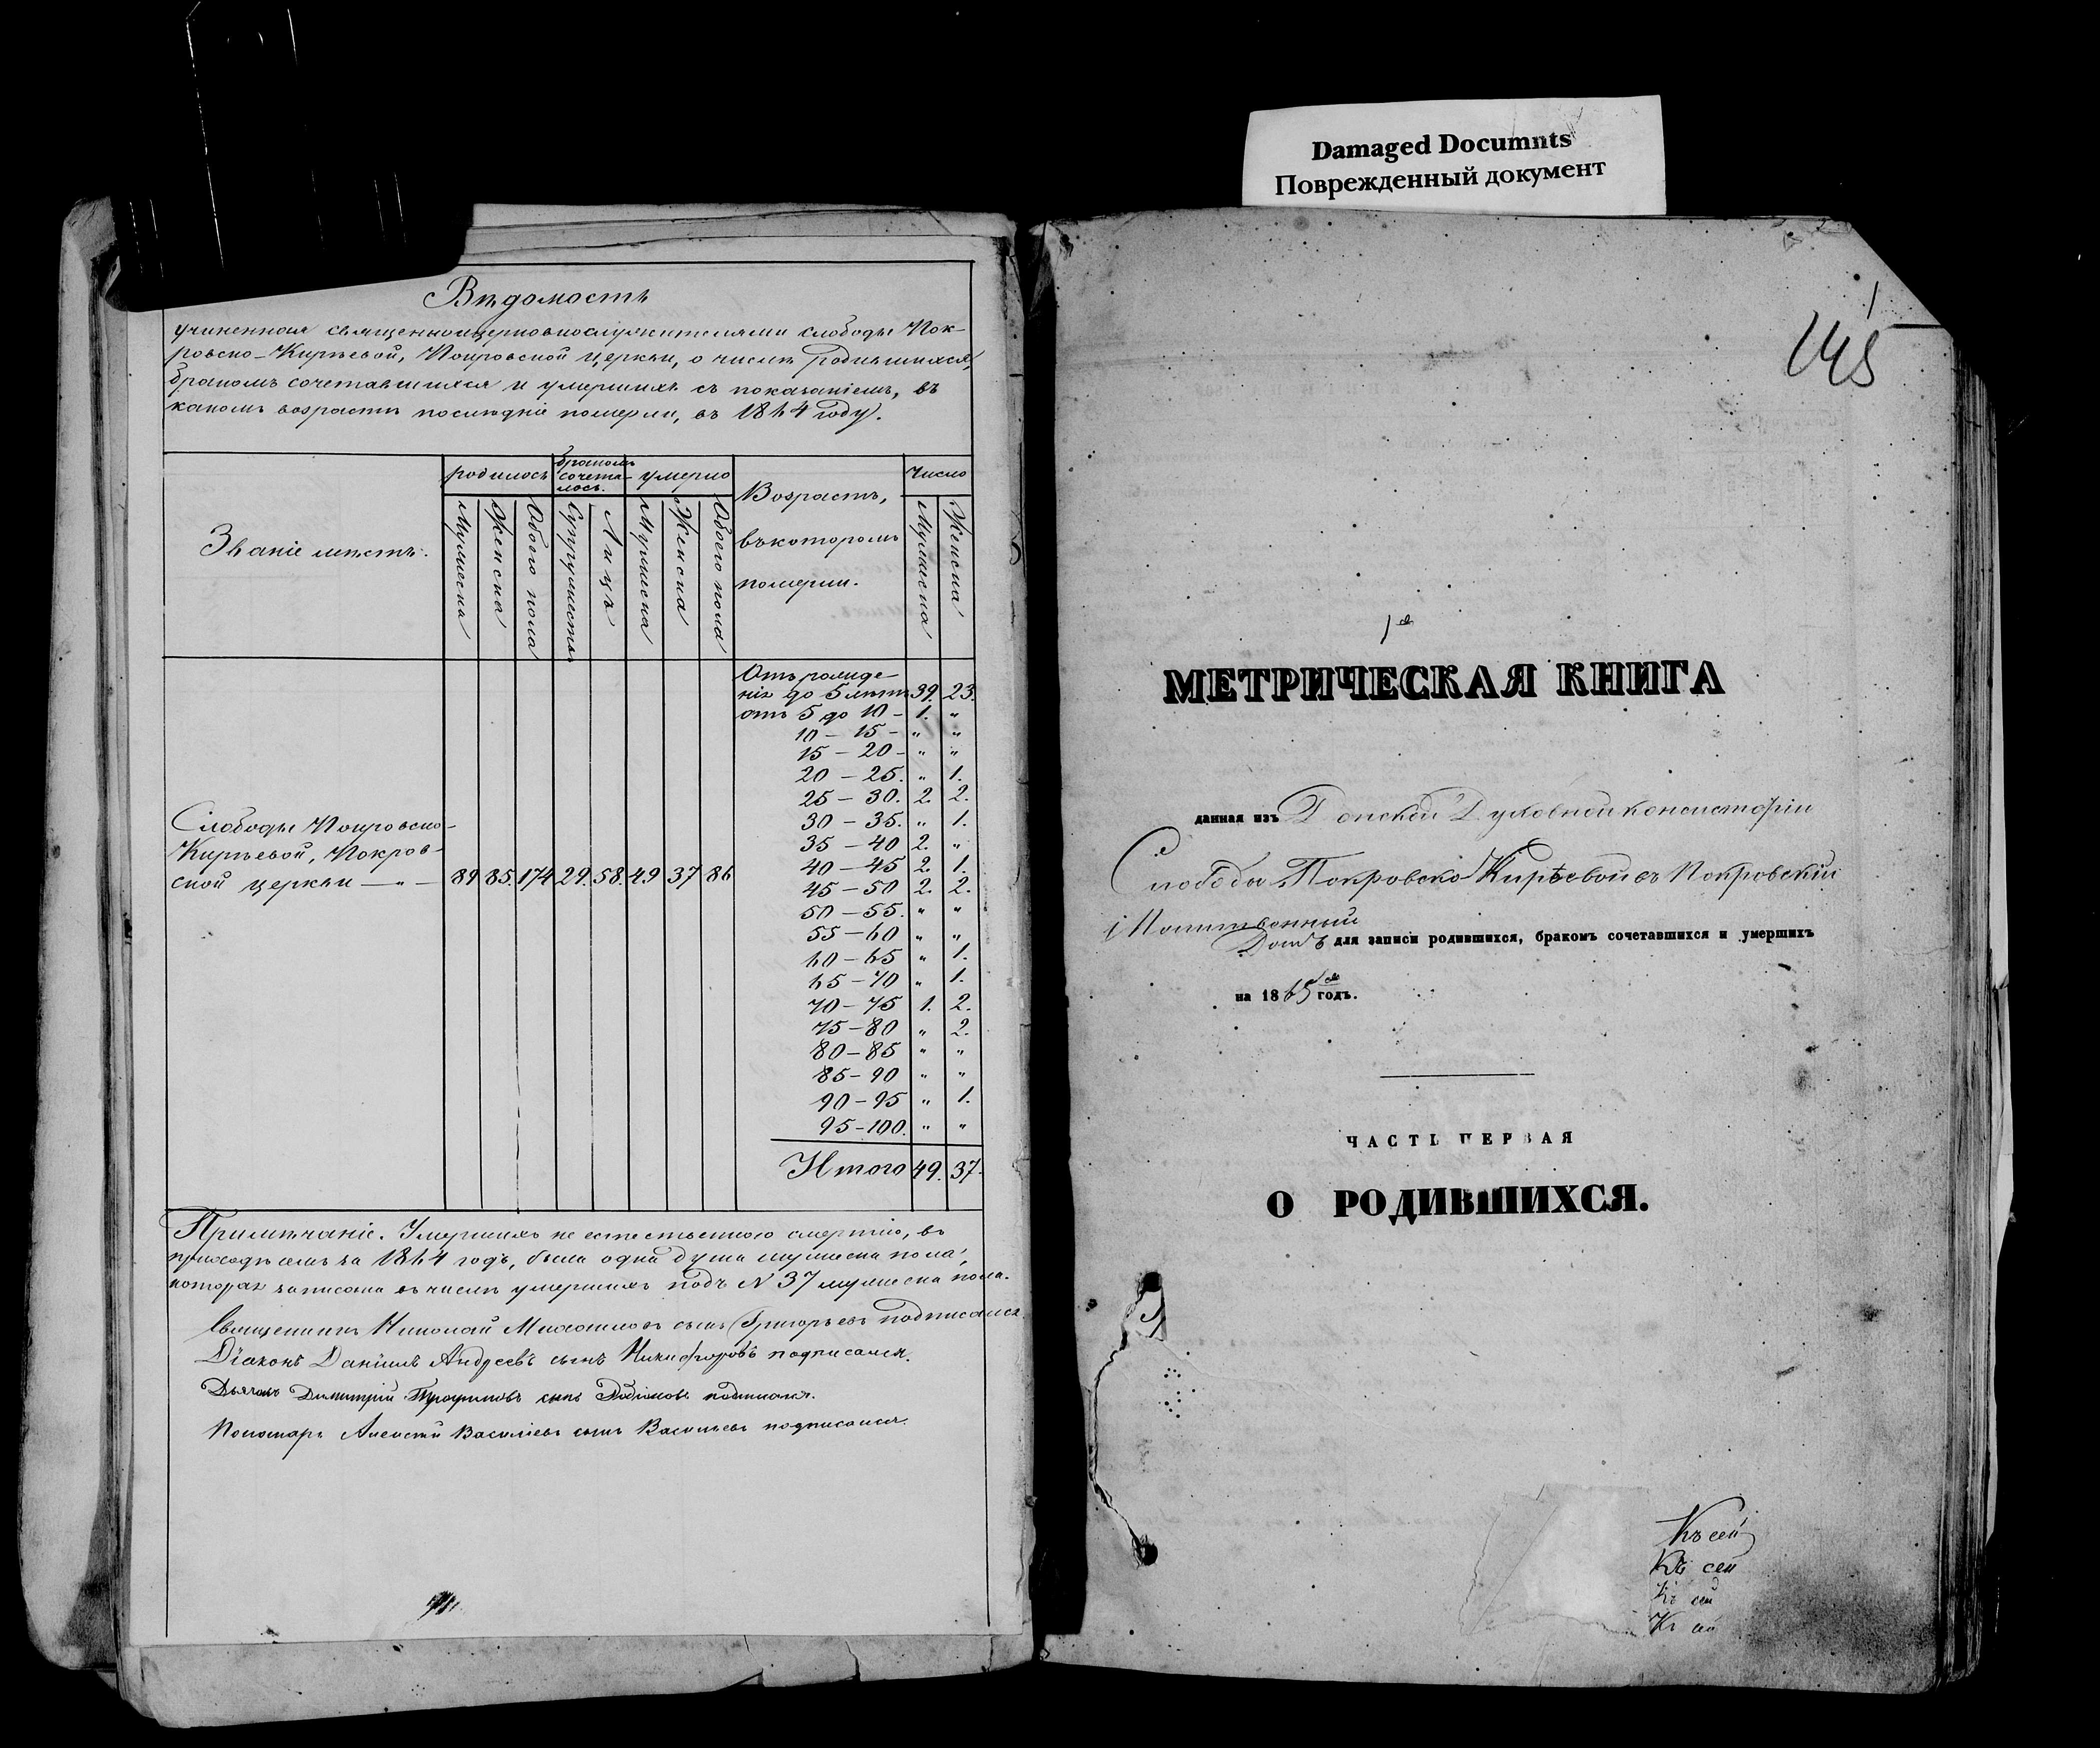 Damaged Documnts
Поврежденный документ
Вѣдомость
учиненная священноцерковнослужителями слободы Пок-
ровско-Кирѣевой, Покровской церкви, о числѣ родившихся,
бракомъ сочетавшихся и умершихъ съ показаніемъ, въ
какомъ возрастѣ послѣдніе померли, въ 1864 году.
Званіе мѣстъ.
родилось
бракомъ
сочета-
лось.
умерло
Возрастъ,
въ которомъ
померли.
Число
Мужеска
Женска
Обоего пола
Супружествъ
Лицъ
Мужеска
Женска
Обоего пола
Мужеска
Женска
Отъ рожде-
нія до 5 лѣтъ 39. 23.
отъ 5 до 10 - 1. "
10 - 15 - " "
15 - 20 - " "
20 - 25. " 1.
25 - 30. 2. 2.
30 - 35. " 1.
35 - 40 2. "
40 - 45 2. 1.
45 - 50 2. 2.
50 - 55. " "
55 - 60 " "
60 - 65 " 1.
65 - 70 " 1.
70 - 75 1. 2.
75 - 80 " 2.
80 - 85 " "
85 - 90 " "
90 - 95 " 1.
95 - 100. " "
Итого 49. 37.
Слободы Покровско-
Кирѣевой, Покров-
ской церкви — " — 89 85. 174 29. 58. 49 37 86
Примѣчаніе. Умершихъ не естественною смертію, въ
приходѣ семъ за 1864 годъ, была одна душа мужеска пола,
которая записана въ числѣ умершихъ подъ N 37 мужеска пола.
Священникъ Николай Михаиловъ сынъ Григорьевъ подписался.
Діаконъ Даніилъ Андреевъ сынъ Никифоровъ подписался.
Дьячокъ Димитрій Трофимовъ сынъ подписался.
Пономарь Алексѣй Василіевъ сынъ Васильевъ подписался.
145
1я
МЕТРИЧЕСКАЯ КНИГА
данная изъ Донской Духовной консисторіи
Слободы Покровско Кирѣевой въ Покровскій
Молитвенный
Домъ для записи родившихся, бракомъ сочетавшихся и умершихъ
на 1865 годъ.
ЧАСТЬ ПЕРВАЯ
О РОДИВШИХСЯ.
Къ сей
Къ сей
Къ сей
Къ сей